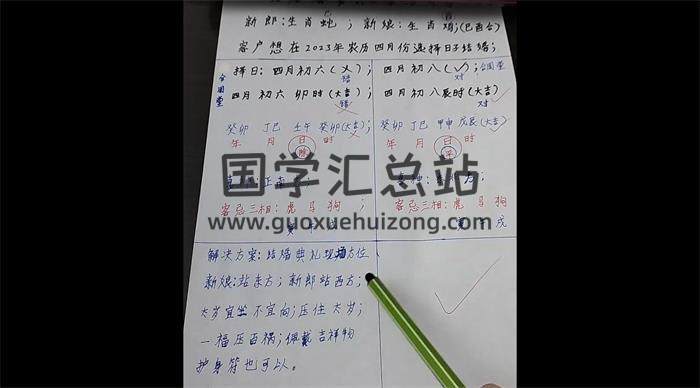 新郎:生肖蛇;新娘:生肖鸡;(巳酉合)
客户想在2023年农历四月份选择日子结婚;
合周堂
择日:四月初六(×);
错
四月初六卯时(大吉)
错
癸卯 丁巳 壬午 癸卯(大吉);
年 月 日 时
客忌三相:虎马狗;
四月初八(✓);合周堂
对
四月初八辰时(大吉)
对
癸卯 丁巳 甲申 戊辰(大吉)
年 月 日 时
平
客忌三相:虎马狗
国学汇总站
www.guoxuehuizong.com
解决方案:结婚典礼现场方位
新娘:站东方;新郎站西方;
太岁宜坐不宜向;压住太岁;
一福压百祸;佩戴吉祥物
护身符也可以。